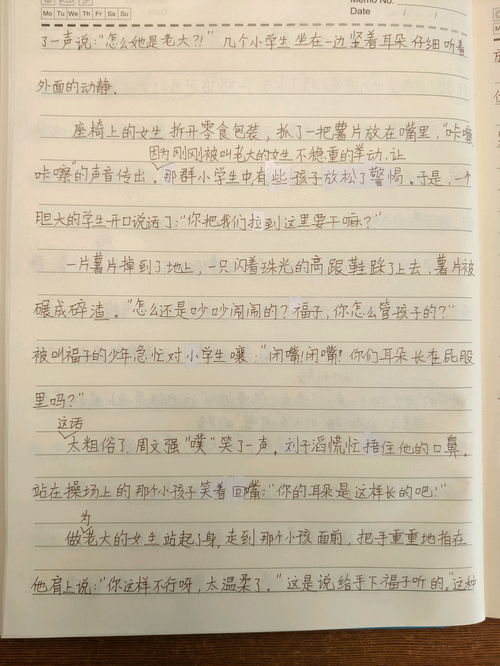 Memo No.
Mo Tu We Th Fr Sa Su
Date / /
了一声说:“怎么她是老大?!” 几个小学生坐在一边竖着耳朵仔细听着
外面的动静.
座椅上的女生拆开零食包装,抓了一把薯片放在嘴里,“咔嚓
因为刚刚被叫老大的女生不稳重的举动,让
咔嚓”的声音传出。那群小学生中有些孩子放松了警惕。于是,一个
胆大的学生开口说话了:“你把我们拉到这里要干嘛?”
一片薯片掉到了地上,一只闪着珠光的高跟鞋踩了上去,薯片被
碾成碎渣。“怎么还是吵吵闹闹的?福子,你怎么管孩子的?”
被叫福子的少年急忙对小学生嚷:“闭嘴!闭嘴!你们耳朵长在屁股
里吗?”
这话
太粗俗了,周文强“噗”笑了一声。刘子滔慌忙捂住他的口鼻。
站在操场上的那个小孩子笑着回嘴:“你的耳朵是这样长的吧!”
为
做老大的女生站起了身,走到那个小孩面前,把手重重地拍在
他肩上说:“你这样不行呀,太温柔了。”这是说给手下福子听的。“这种